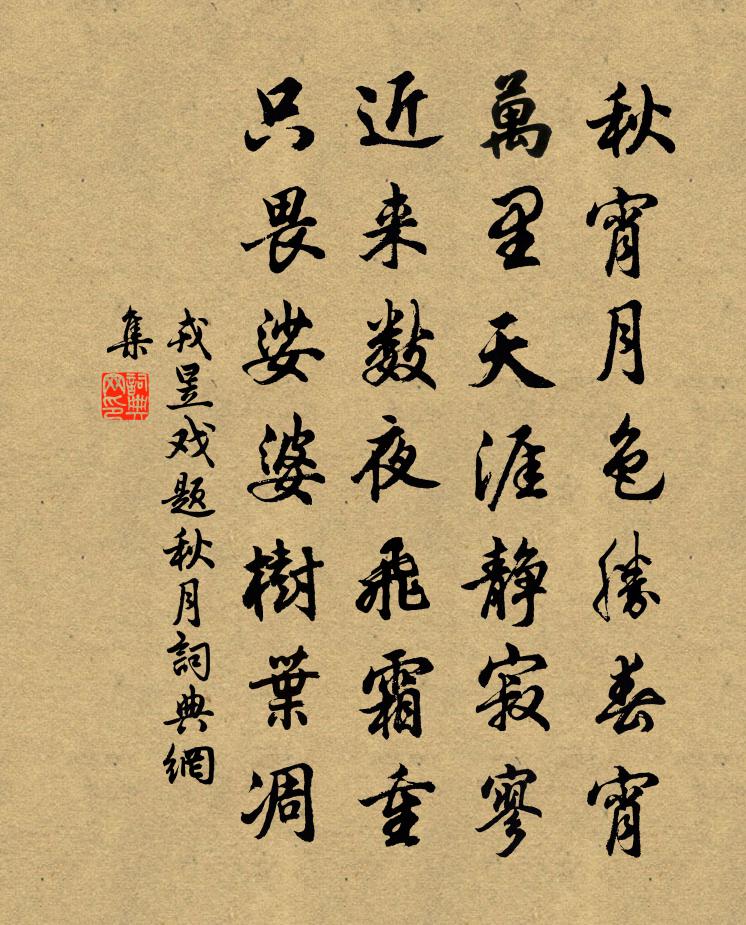 秋宵月色勝春宵
萬里天涯静寂寥
近来数夜飛霜重
只畏娑婆樹葉凋
戎昱戏题秋月詞典網
集
詞典網印